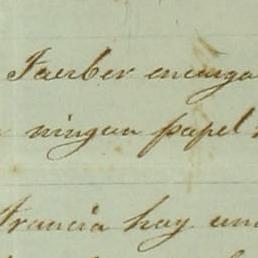 Faerber encarga
ningun papel
Francia hay un